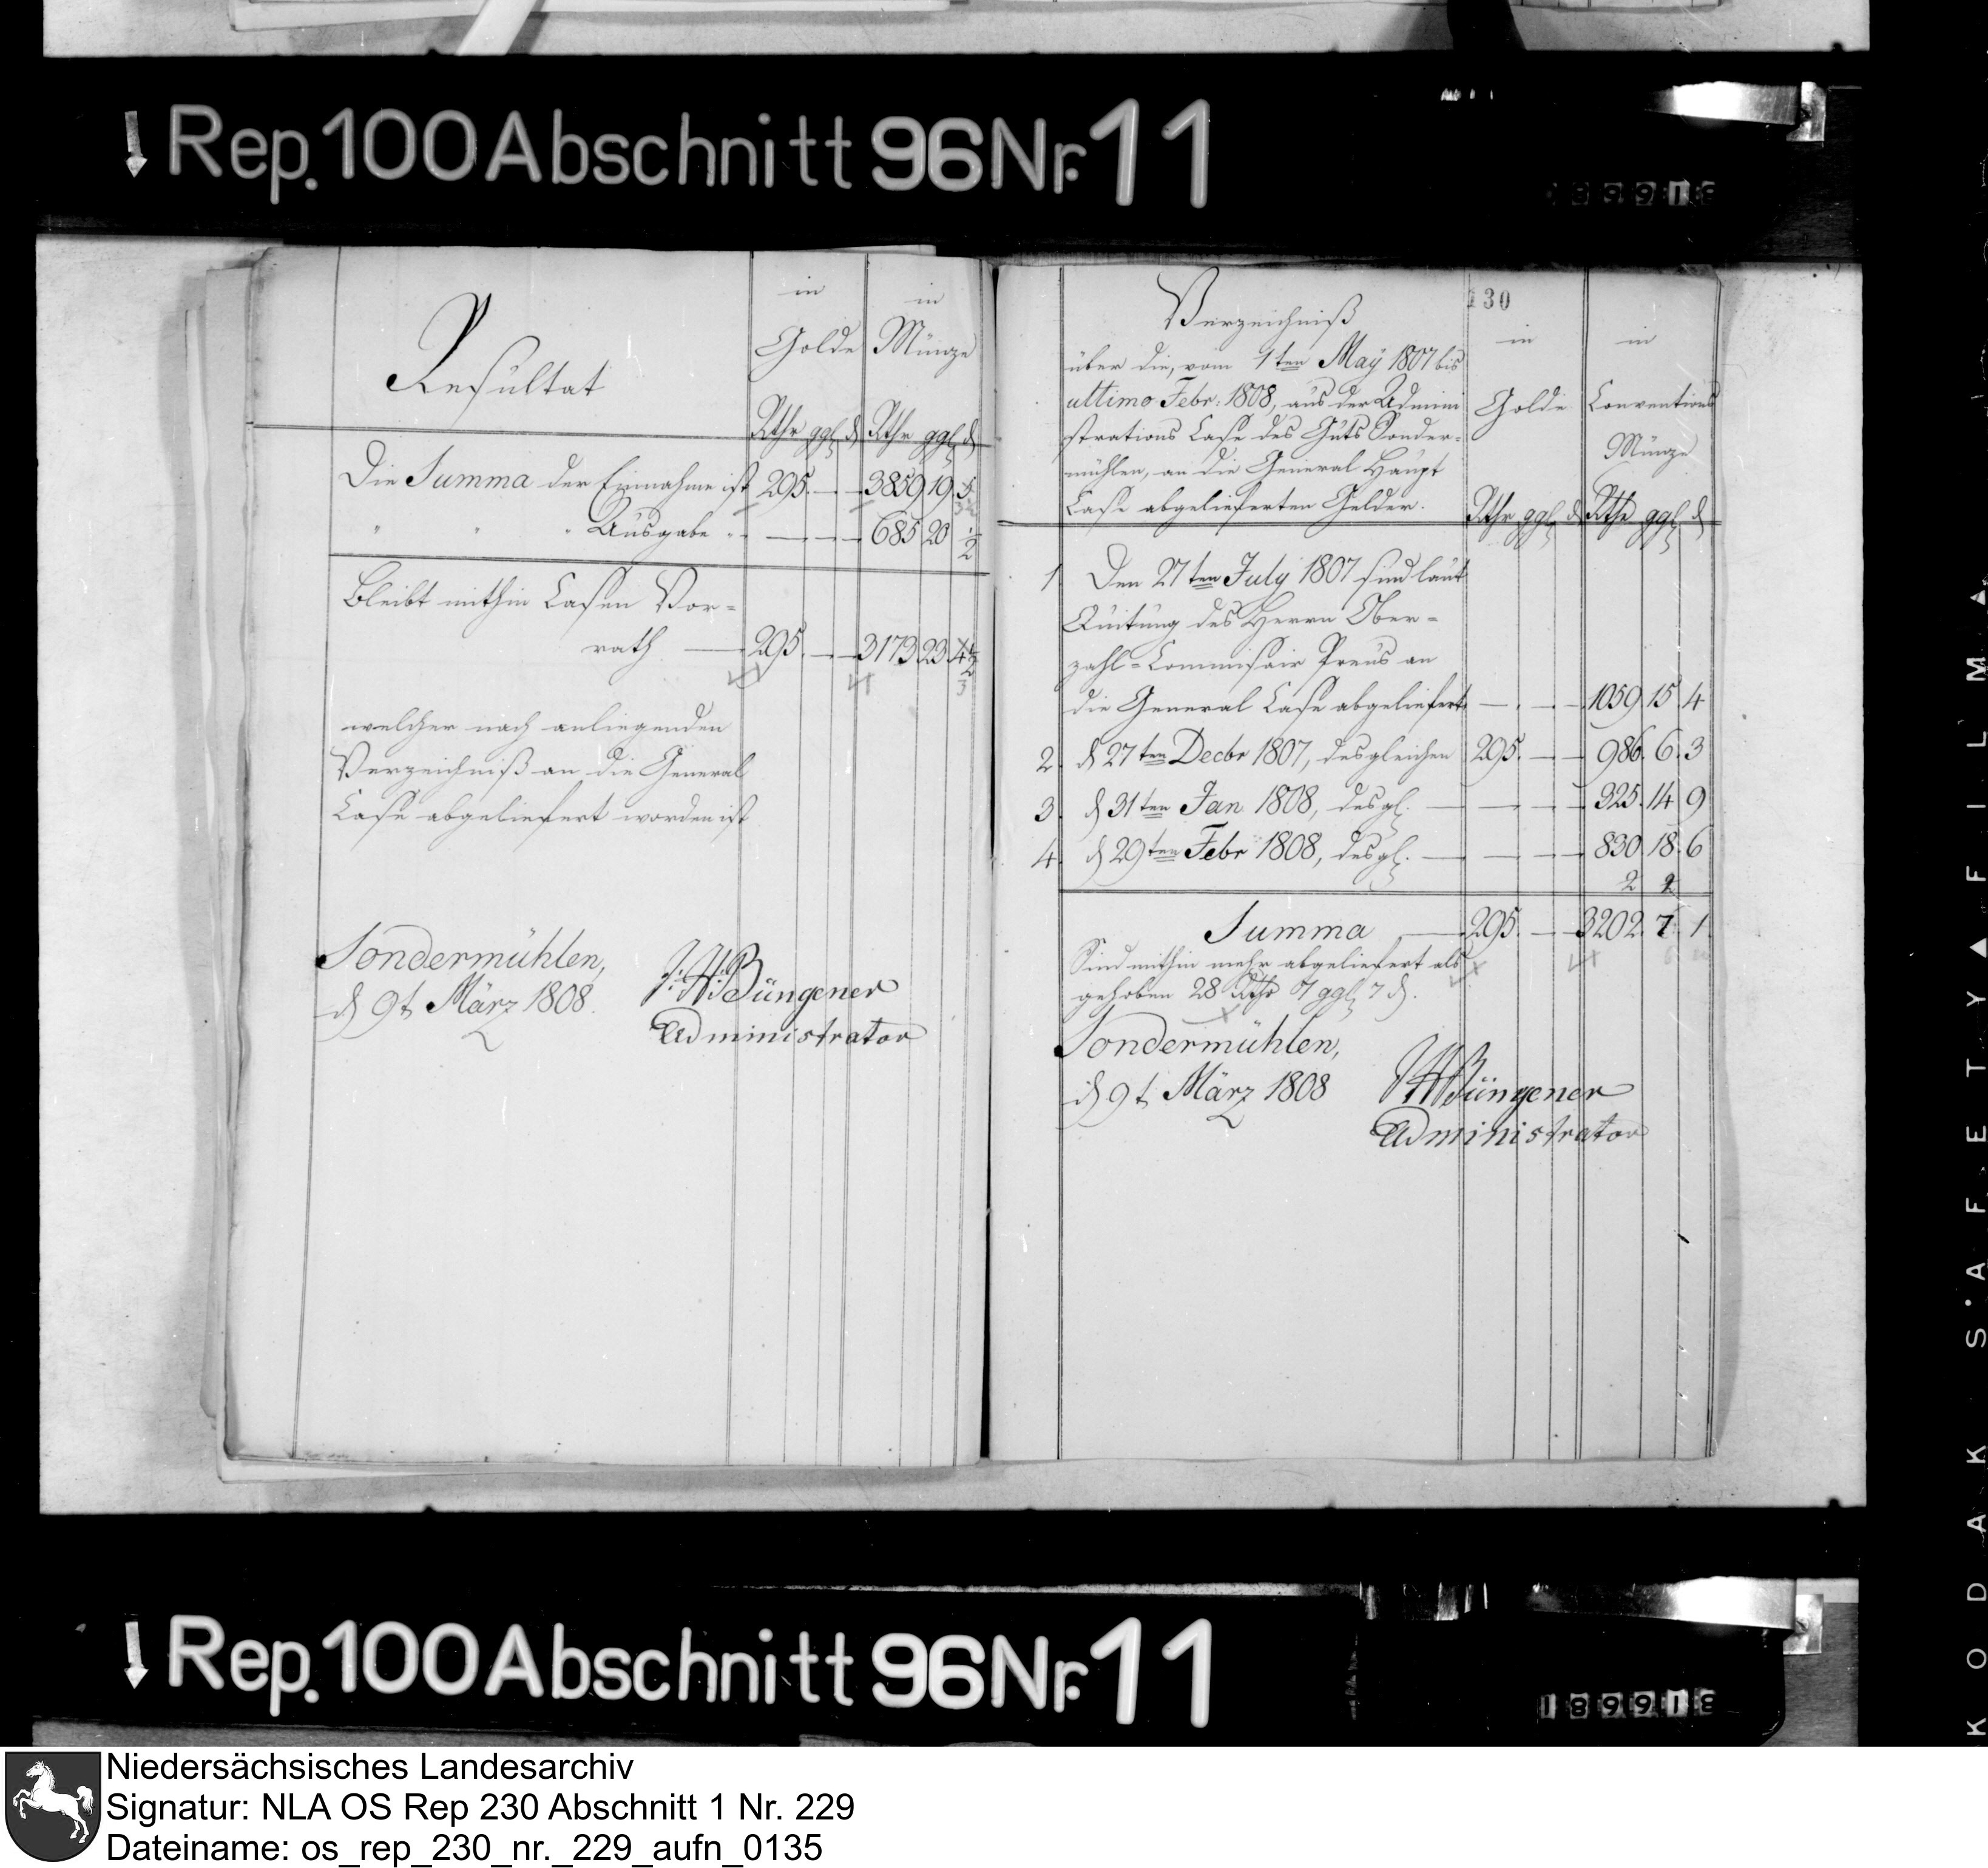 Rep. 100 Abschnitt 96 Nr. 11
18991
Resultat
in Golde
in Münze
Rthr ggl ₰ Rthr ggl ₰
Die Summa der Einnahme ist 295. — — 3859 19 5
" " " Ausgabe " — — — 685 20 ½
Bleibt mithin Casen Vor=
rath — 295. — — 3173 23 4½
3
welcher nach anliegenden
Verzeichniß an die General
Casse abgeliefert worden ist
Sondermühlen,
d 9t März 1808.
J. H. Büngener
Administrator
130
Verzeichniß
über die, vom 1ten May 1807 bis
ultimo Febr: 1808, aus der Admini
strations Casse des Guts Sonder=
mühlen, an die General Haupt
Casse abgelieferten Gelder.
in Golde
in Conventions Münze
Rthr ggl ₰ Rthr ggl ₰
1 Den 27ten July 1807 sind laut
Quitung des Herrn Ober=
zahl=Commissair Preus an
die General Casse abgeliefert — . — 1059. 15. 4
2. d 27ten Decbr 1807, desgleichen 295. — — 986. 6. 3
3. d 31ten Jan 1808, desgl. — — — 325. 14 9
4. d 29ten Febr 1808, desgl. — — — 830. 18. 6
2 2
Summa — 295. — — 3202. 7. 1
Sind mithin mehr abgeliefert als
gehoben 28 Rthr 7 ggl 7 ₰.
Sondermühlen,
d 9t März 1808
JHBüngener
Administrator
Rep. 100 Abschnitt 96 Nr. 11
18991
KODAK SAFETY FILM
Niedersächsisches Landesarchiv
Signatur: NLA OS Rep 230 Abschnitt 1 Nr. 229
Dateiname: os_rep_230_nr._229_aufn_0135